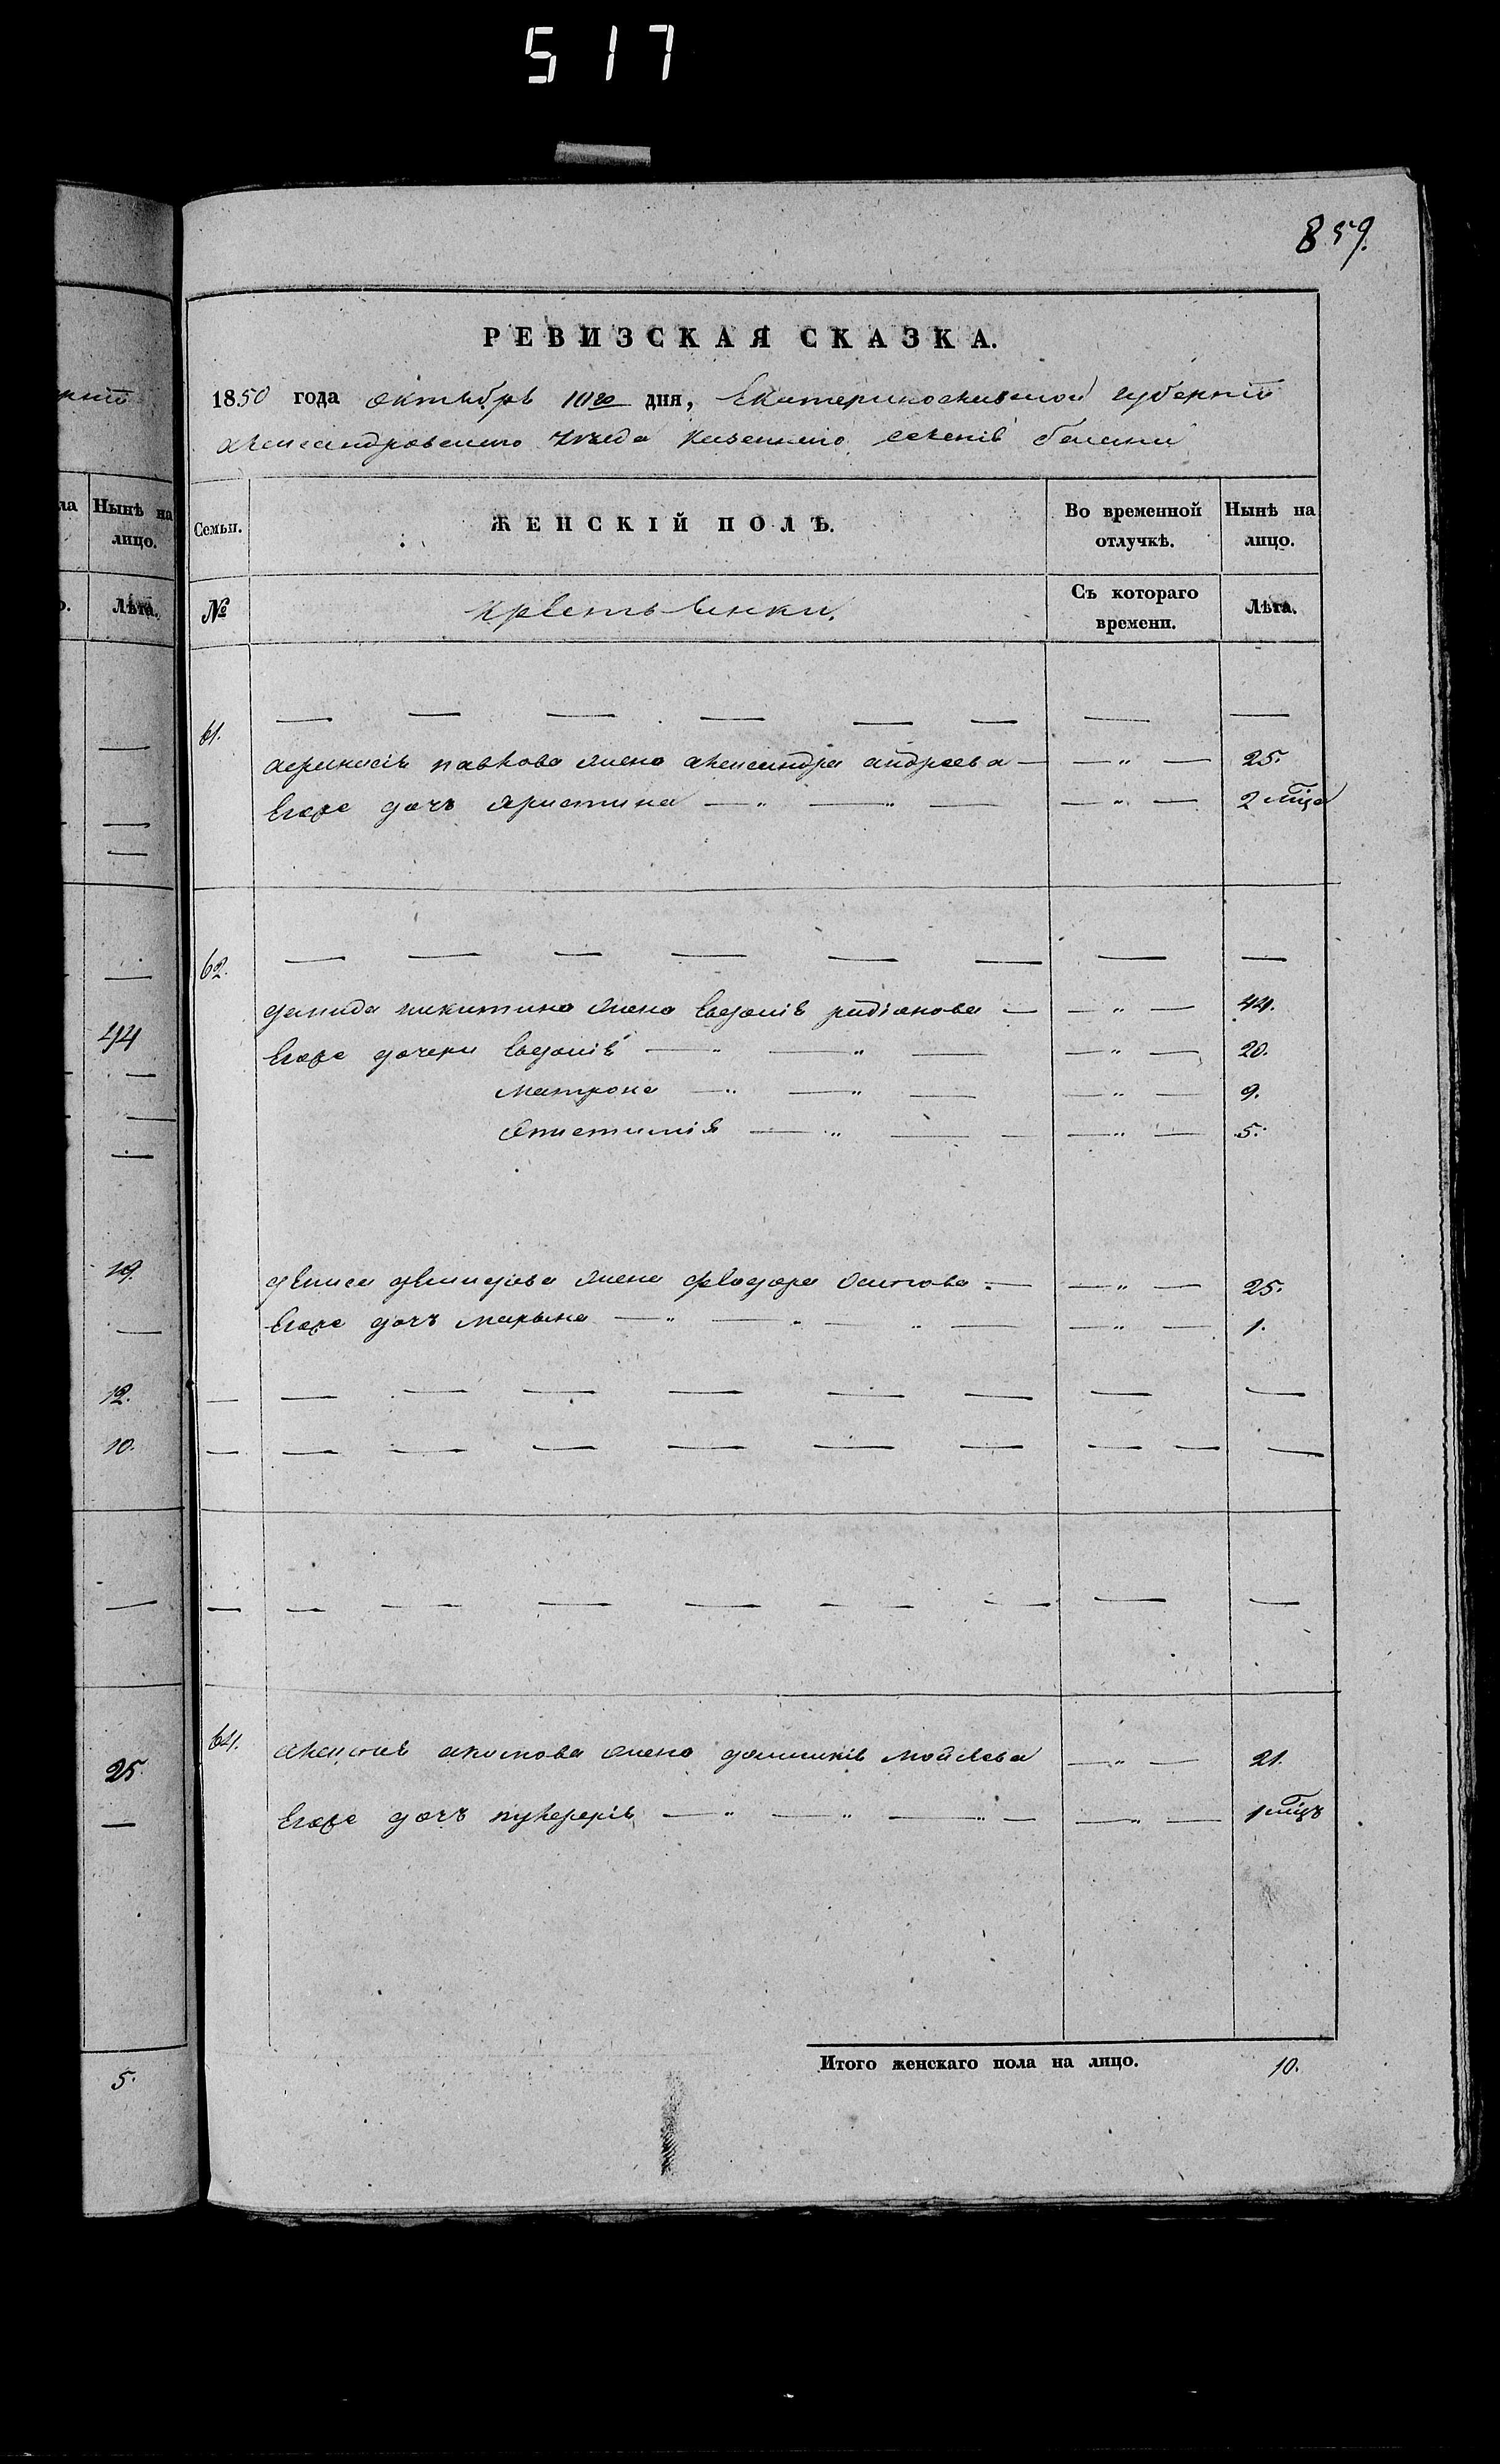 517
859.
РЕВИЗСКАЯ СКАЗКА.
1850 года октября 11го дня, Екатеринославской губернiи
александровскаго уезда казеннаго селенiя белики
Семьи. ЖЕНСКІЙ ПОЛЪ. Во временной отлучкѣ. Нынѣ на лицо.
№ крестьянки. Съ котораго времени. Лѣта.
61. — — — — — — — —
афанасiя павлова жена александра андреева — — " — 25.
Егоже дочъ христина — " — " — — " — 2 мѣца
62. — — — — — — — —
демида никитина жена Евдокiя радiонова — — " — 44.
Егоже дочери Евдокiя — " — " — — " — 20.
матрона — " — " — — " — 9.
— " — — — " — 5.
дениса демидова жена феодора осипова — — " — 25.
Егоже дочъ марьяна — " — " — " — — " — 1.
— — — — — — — — —
— — — — — — — — — —
— — — — — — — — —
64. алексея акимова жена домникiя мойсева — " — 21.
Егоже дочъ пулхерiя — " — " — " — — " — 1 мѣцъ
Итого женскаго пола на лицо. 10.
ла Нынѣ на лицо.
Лѣта.
44
19.
12.
10.
25.
5.